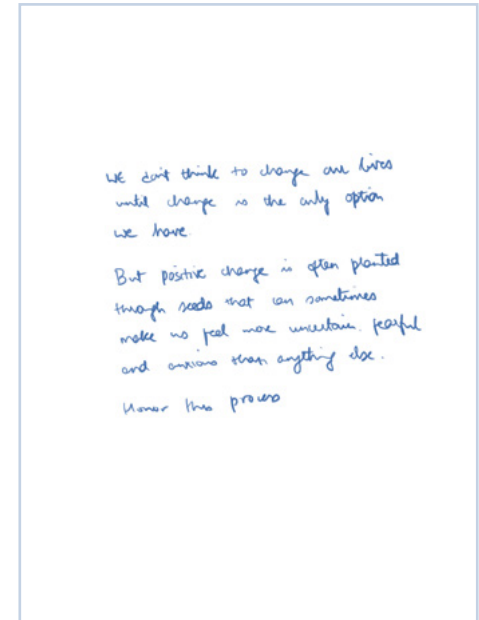 WE don't think to change our lives
until change is the only option
we have
But positive change is often planted
through seeds that can sometimes
make us feel more uncertain, fearful
and anxious than anything else.
Honor this process